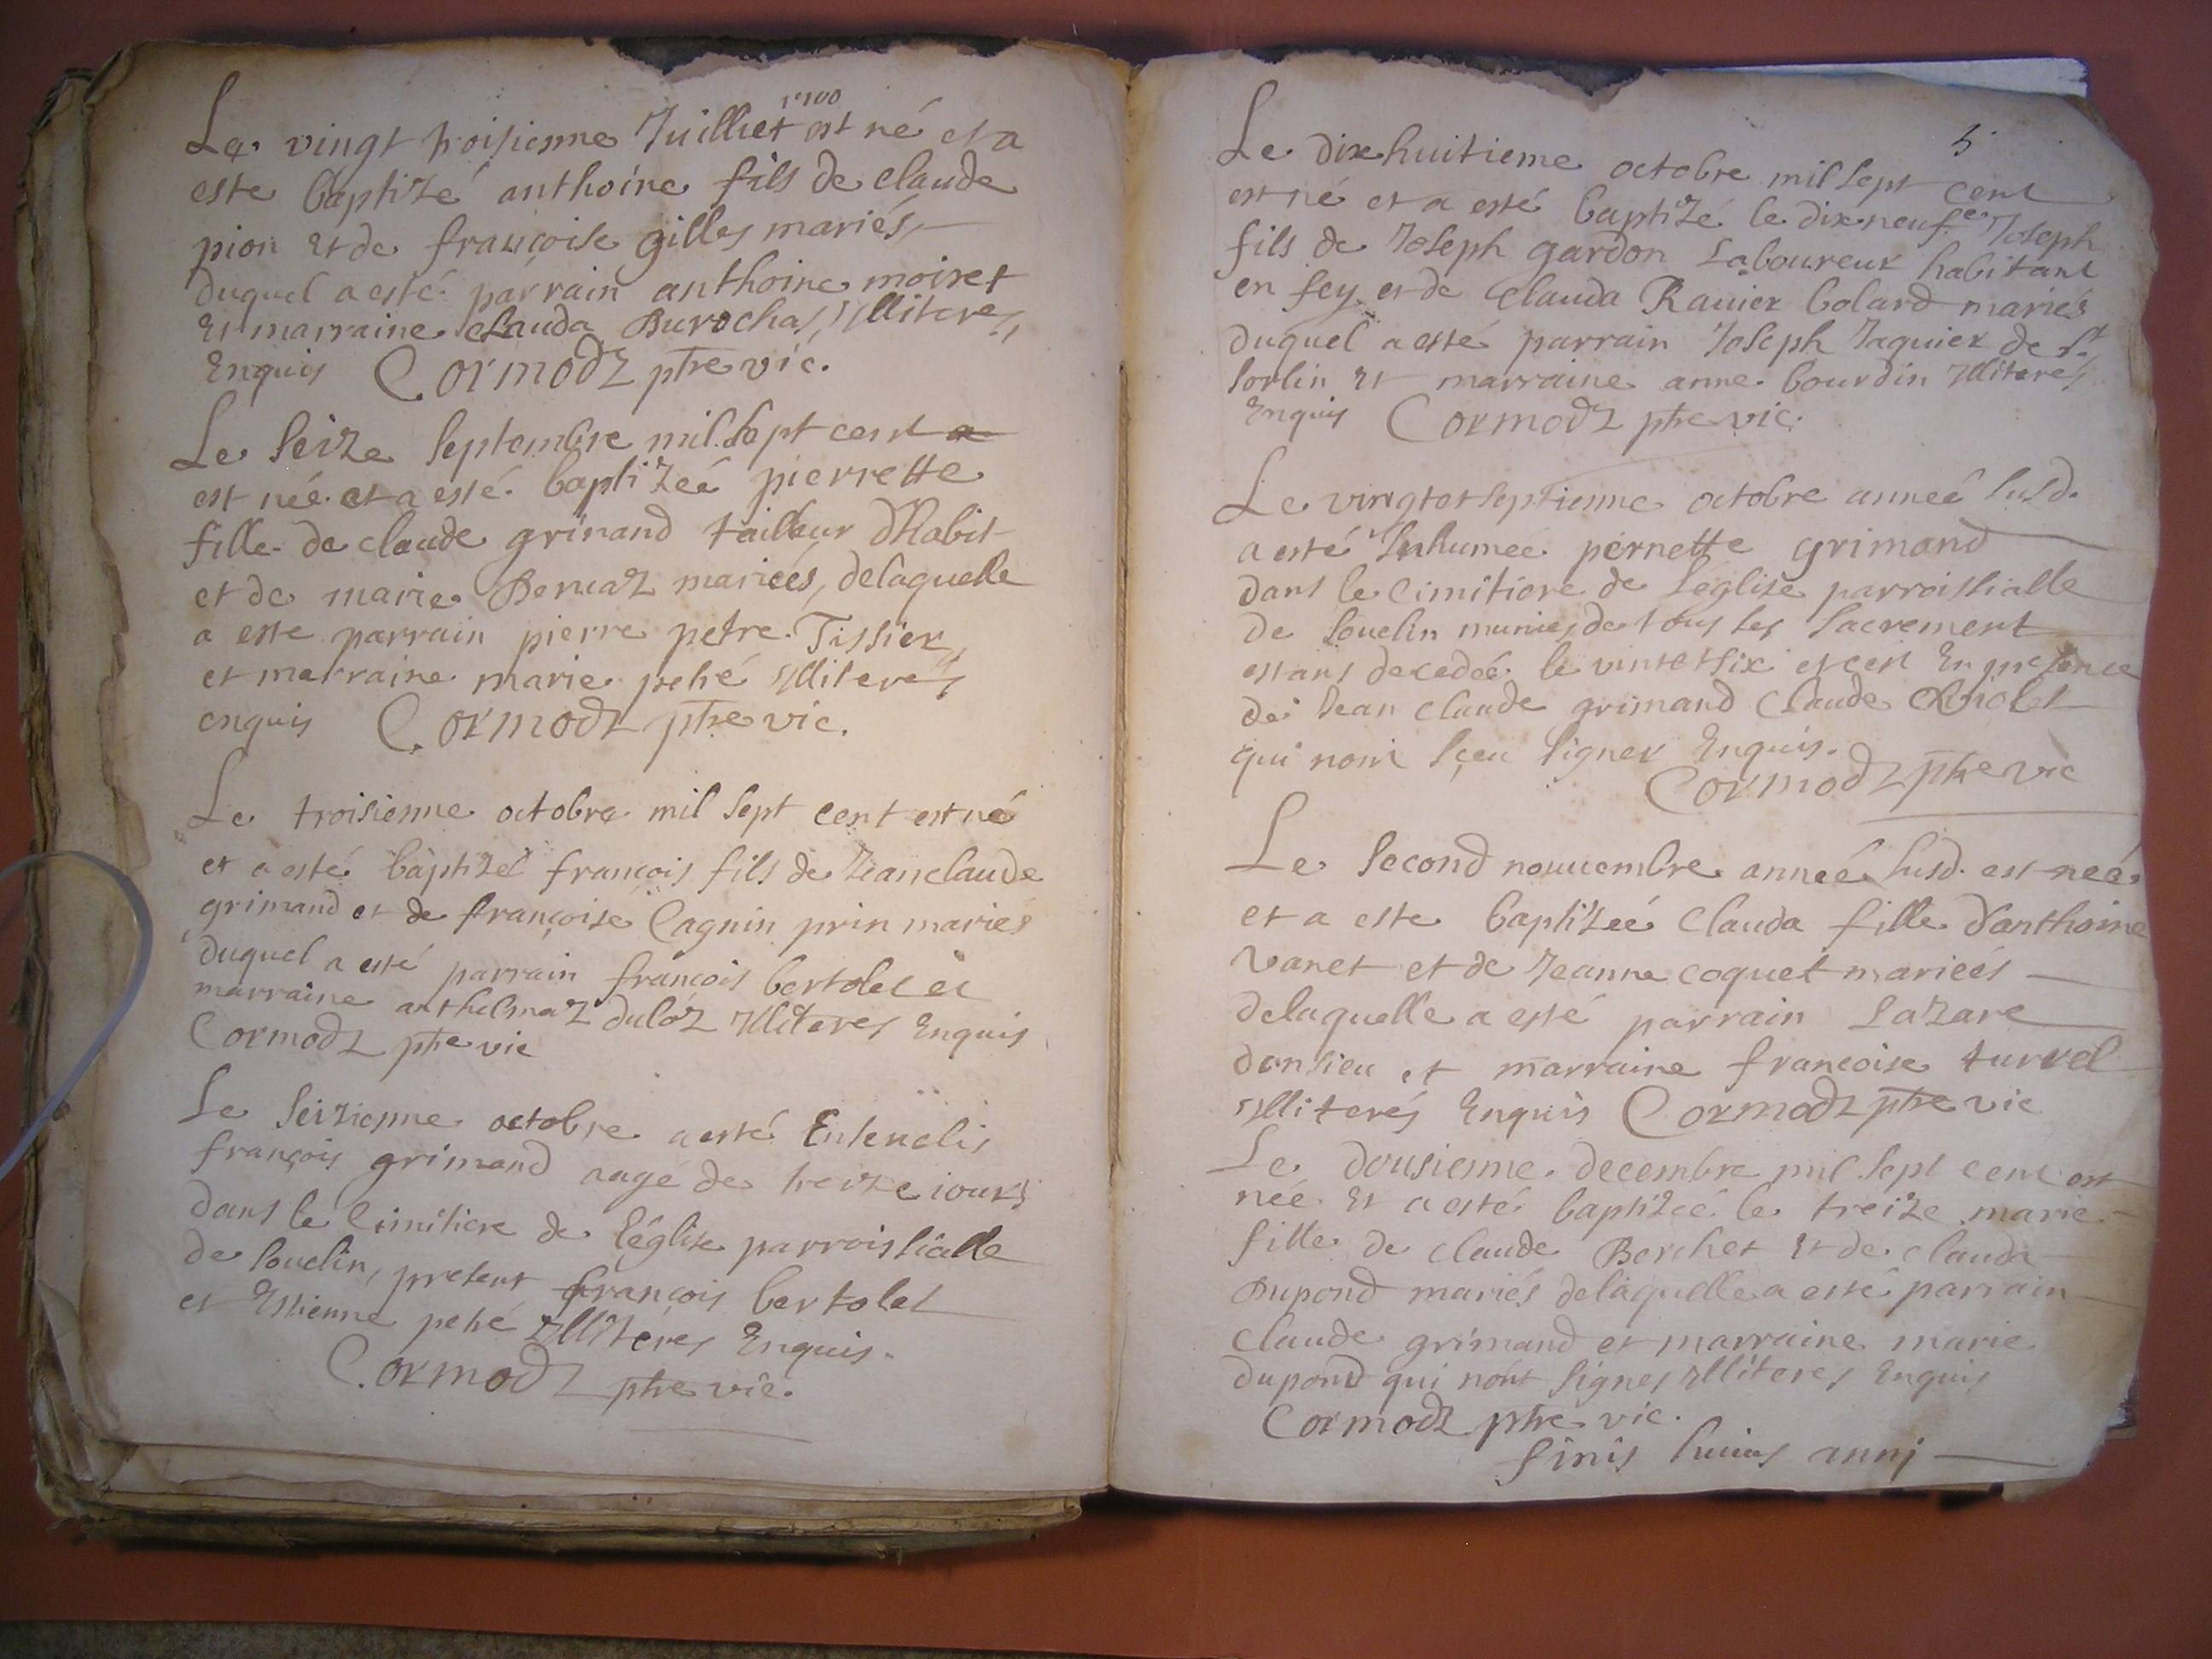 1700
Le vingt troisienne Juilliet est né et a
este baptizé anthoine fils de claude
pion et de françoise gilles mariés,
duquel a esté parrain anthoine moiret
Et marraine Clauda Burochas, Illiteres,
Enquis Cormodz ptre vic.
Le seize septembre mil sept cent a
est née et a esté baptizeé pierrette
fille de claude grimand tailleur dhabit
et de marie Bernaz marieés, delaquelle
a este parrain pierre petre Tissier,
et marraine marie petré Illiterés
enquis Cormodz ptre vic.
Le troisienne octobre mil sept cent est né
et a esté baptizé françois fils de Jeanclaude
grimand et de françoise Cagnin prin mariés
duquel a esté parrain françois bertolet et
marraine anthelmaz duloz Illiteres Enquis
Cormodz ptre vic
Le seizienne octobre a esté Enseuelis
françois grimand aagé de treize iours
dans le Cimitiere de l'église parroissialle
de souclin, present françois bertolet
et Estienne petré Illitéres Enquis.
Cormodz ptre vic.
5
Le dixhuitieme octobre mil sept cent
est né et a esté baptizé le dixneufe. Joseph
fils de Joseph gardon Laboureur habitant
en fey et de Clauda Rauier bolard mariés
duquel a esté parrain Joseph Jaquier de st
sorlin et marraine anne bourdin Illiterés
Enquis Cormodz ptre vic.
Le vingtetseptienne octobre anneé susd.
a esté Inhumeé pernette grimand
dans le Cimitiere de Leglise parroissialle
de souclin munie de tous les sacrement
estant decedeé le vintetsix et cest En presence
de Jean claude grimand Claude
qui nont sçeu signer Enquis.
Cormodz ptre vic
Le second nouuembre anneé susd. est neé
et a este baptizeé Clauda fille d'anthoine
vanet et de Jeanne coquet marieés
delaquelle a esté parrain Lazare
donsieu et marraine francoise turrel
Illiterés Enquis Cormodz ptre vic
Le dousienne decembre mil sept cent est
née Et a esté baptizeé le treize marie
fille de claude Berchet Et de clauda
Dupond mariés delaquelle a esté parrain
claude grimand et marraine marie
dupond qui nont signes Illiteres Enquis
Cormodz ptre vic.
finis huius anni